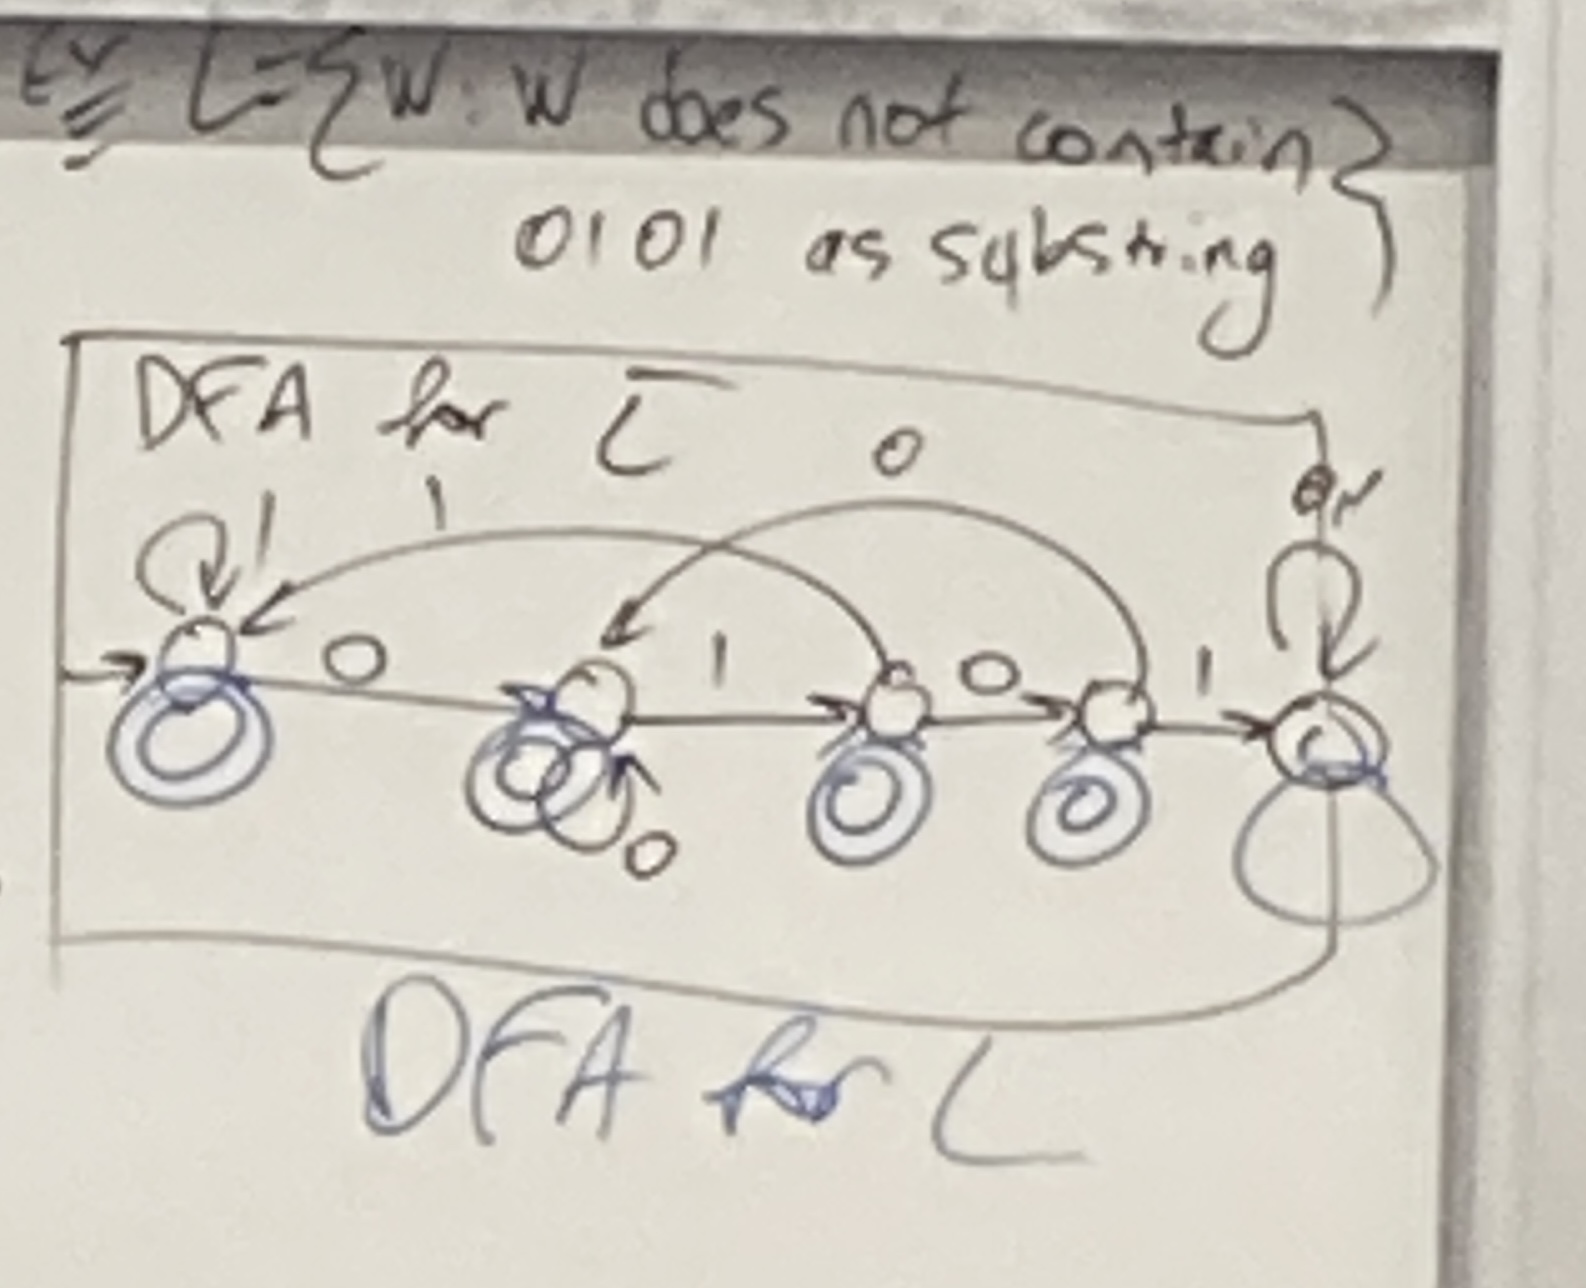 Ex L={w: w does not contain}
0101 as substring
DFA for L̅
0
1
1
0
1
0
1
0
DFA for L